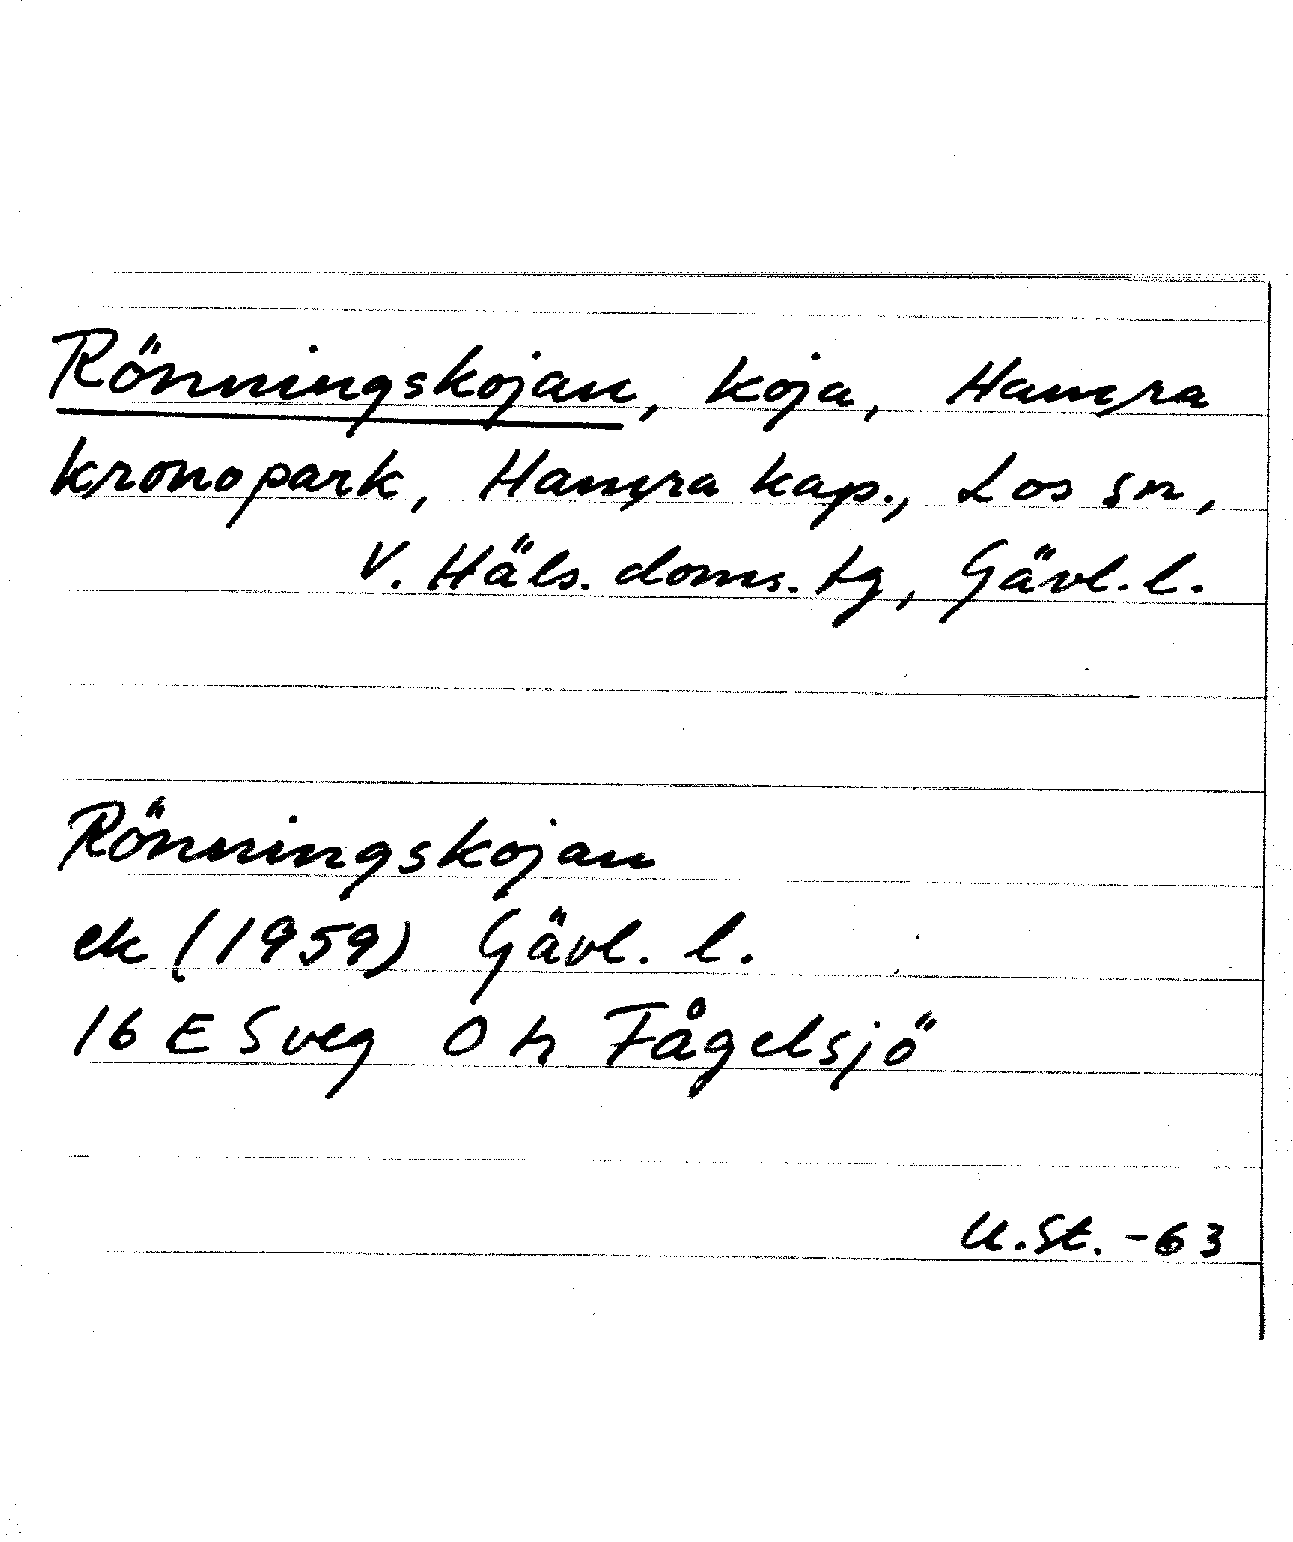 Rönningskojan, koja, Hamra
kronopark, Hamra kap., Los sn,
V. Häls. doms. tg, Gävl. l.
Rönningskojan
ek (1959) Gävl. l.
16 E Sveg Fågelsjö
U.St. -63